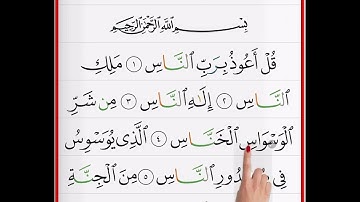 بِسْمِ اللَّهِ الرَّحْمَٰنِ الرَّحِيمِ
قُلْ أَعُوذُ بِرَبِّ ٱلنَّاسِ ١ مَلِكِ
ٱلنَّاسِ ٢ إِلَٰهِ ٱلنَّاسِ ٣ مِن شَرِّ
ٱلْوَسْوَاسِ ٱلْخَنَّاسِ ٤ ٱلَّذِى يُوَسْوِسُ
فِى صُدُورِ ٱلنَّاسِ ٥ مِنَ ٱلْجِنَّةِ